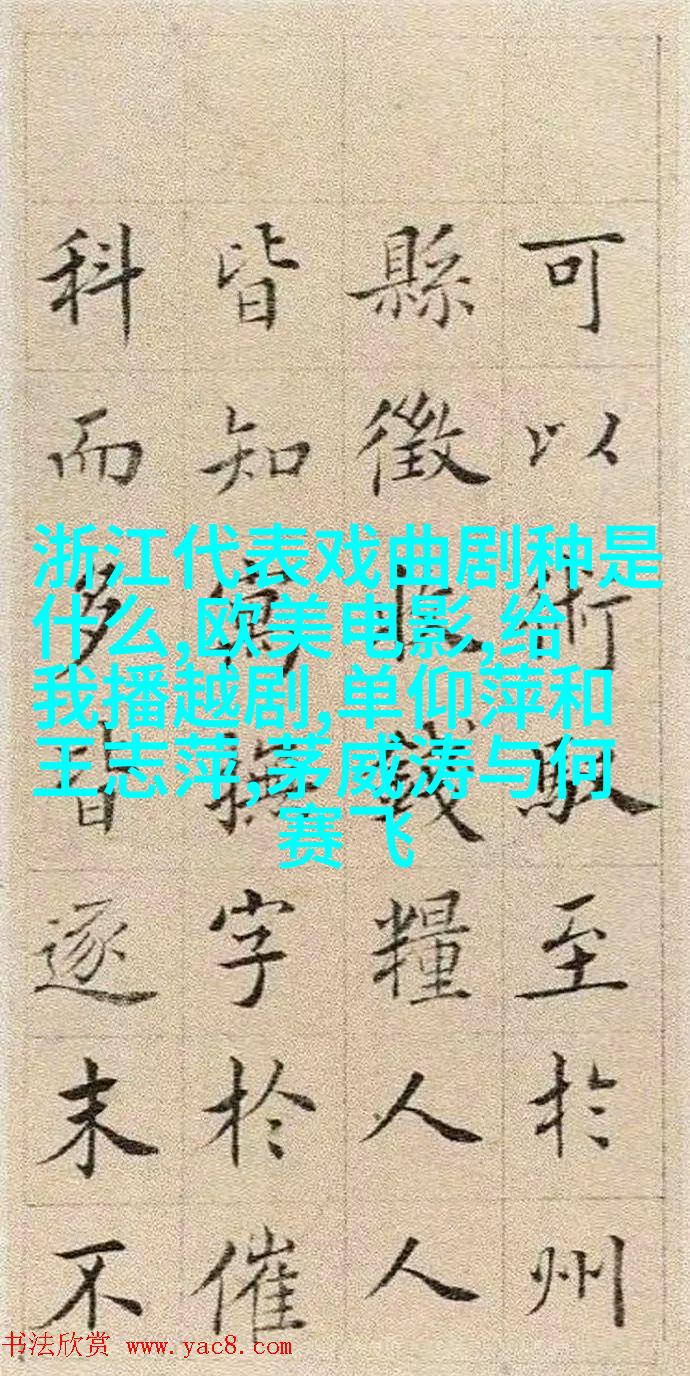 可以術取至於州
縣徵收錢糧人人
皆知寓撫字於催
科而多皆逐末不
浙江代表戏曲剧种是
什么,欧美电影,给
我播越剧,单仰萍和
王志萍,茅威涛与何
赛飞
书法欣赏 www.yac8.com